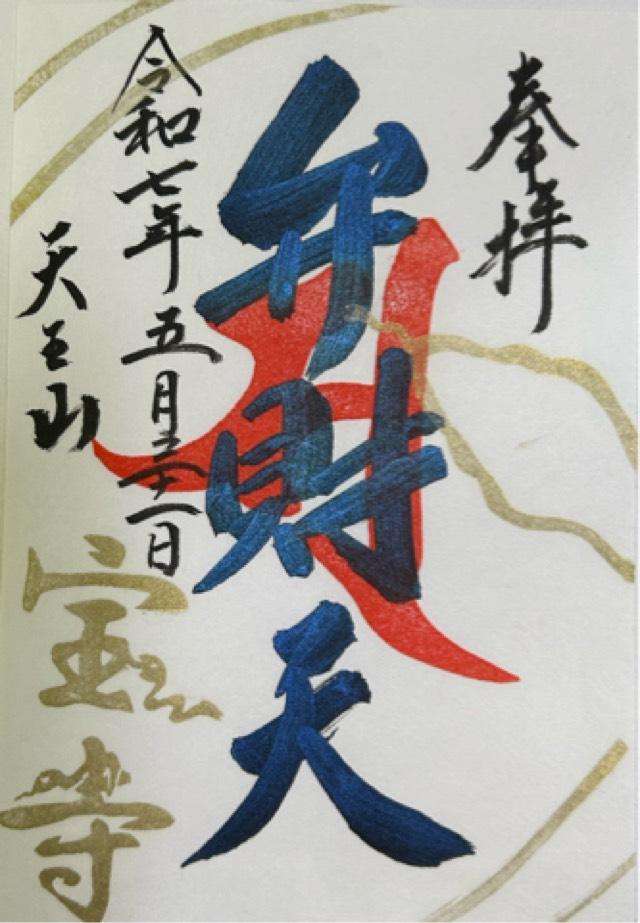 奉拝
弁財天
令和七年五月三十一日
天王山
宝寺